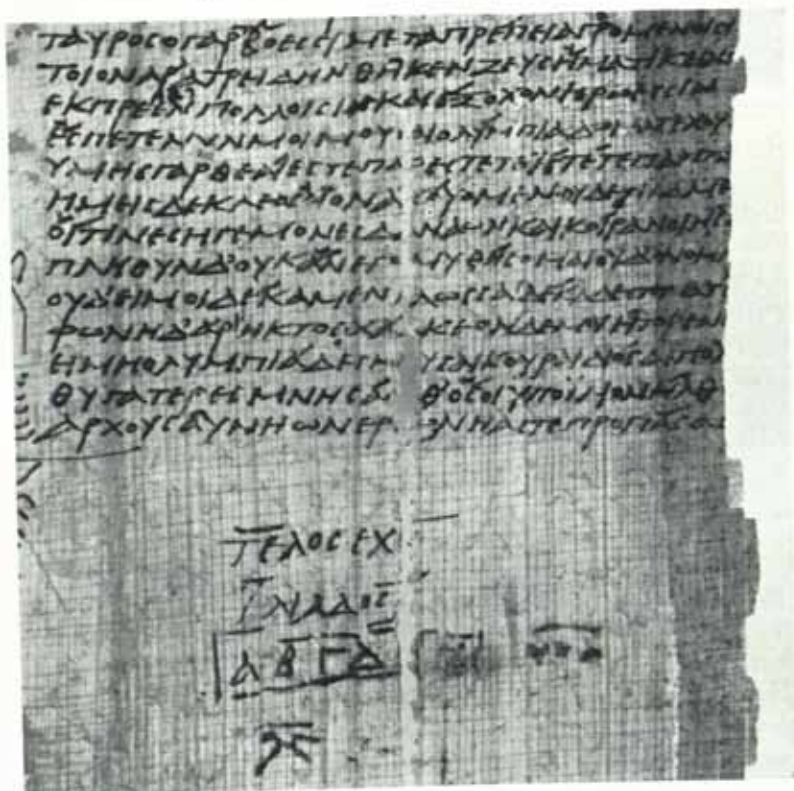 ΤΑΥΡΟCΟΓΑΡΒΟΕCCΙΜΕΤΑΠΡΕΠΕΙΑΓΡΟΜΕΝΟΙC
ΤΟΙΟΝΑΡΑΤΡΗΔΗΝΘΗΚΕΝΖΕΥCΗΜΑΤΙΚΕΙΝΩ
ΕΚΠΡΕΠΕΝΠΟΛΛΟΙCΙΝΚΑΙΕΞΟΧΟΝΗΡΩΕCCΙΝ
ΕCΠΕΤΕΝΥΝΜΟΙΜΟΥ ΑΙΟΛΥΜΠΙΑΔΩΜΑΤΕΧΟΥ
ΥΜΗCΓΑΡΘΕΑΙΕCΤΕΠΑΡΕCΤΕΤΕΙCΤΕΤΕΠΑΝΤΑ
ΗΜΗCΔΕΚΛΕΟCΟΙΟΝΑ ΟΥΟΜΕΝΟΥΔΕΤΙΙΔΜΕ
ΟΙΤΙΝΕCΗΓΕΜΟΝΕCΔΑΝΑΩΝΚΑΙΚΟΙΡΑΝΟΙΗC
ΠΛΗΘΥΝΔΟΥΚΑΝΕΓΩΜΥΘΗCΟΜΑΙΟΥΔΟΝΟΜ
ΟΥΔΕΙΜΟΙΔΕΚΑΜΕΝ ΛΩCCΑΙΔΕΚΑΔΕCΤΟΜΑΤ
ΦΩΝΗΔΑΡΗΚΤΟCΧΑ ΚΕΟΝΔΕΜΟΙΗΤΟΡΕΝ
ΗΜΗΟΛΥΜΠΙΑΔΕCΜ ΥCΑΙΚΟΥΡΑΙΔΙΟCΑΙΓΙΟΧ
ΘΥΓΑΤΕΡΕCΜΝΗCΑ ΘΟCΟΙΥΠΟΙΛΙΟΝΗΛΘ
ΑΡΧΟΥCΑΥΝΗΩΝΕΡ ΩΝΗΑCΤΕΠΡΟΠΑCΑC
ΤΕΛΟCΕΧ
ΙΛΙΑΔΟC
Α Β Γ Δ